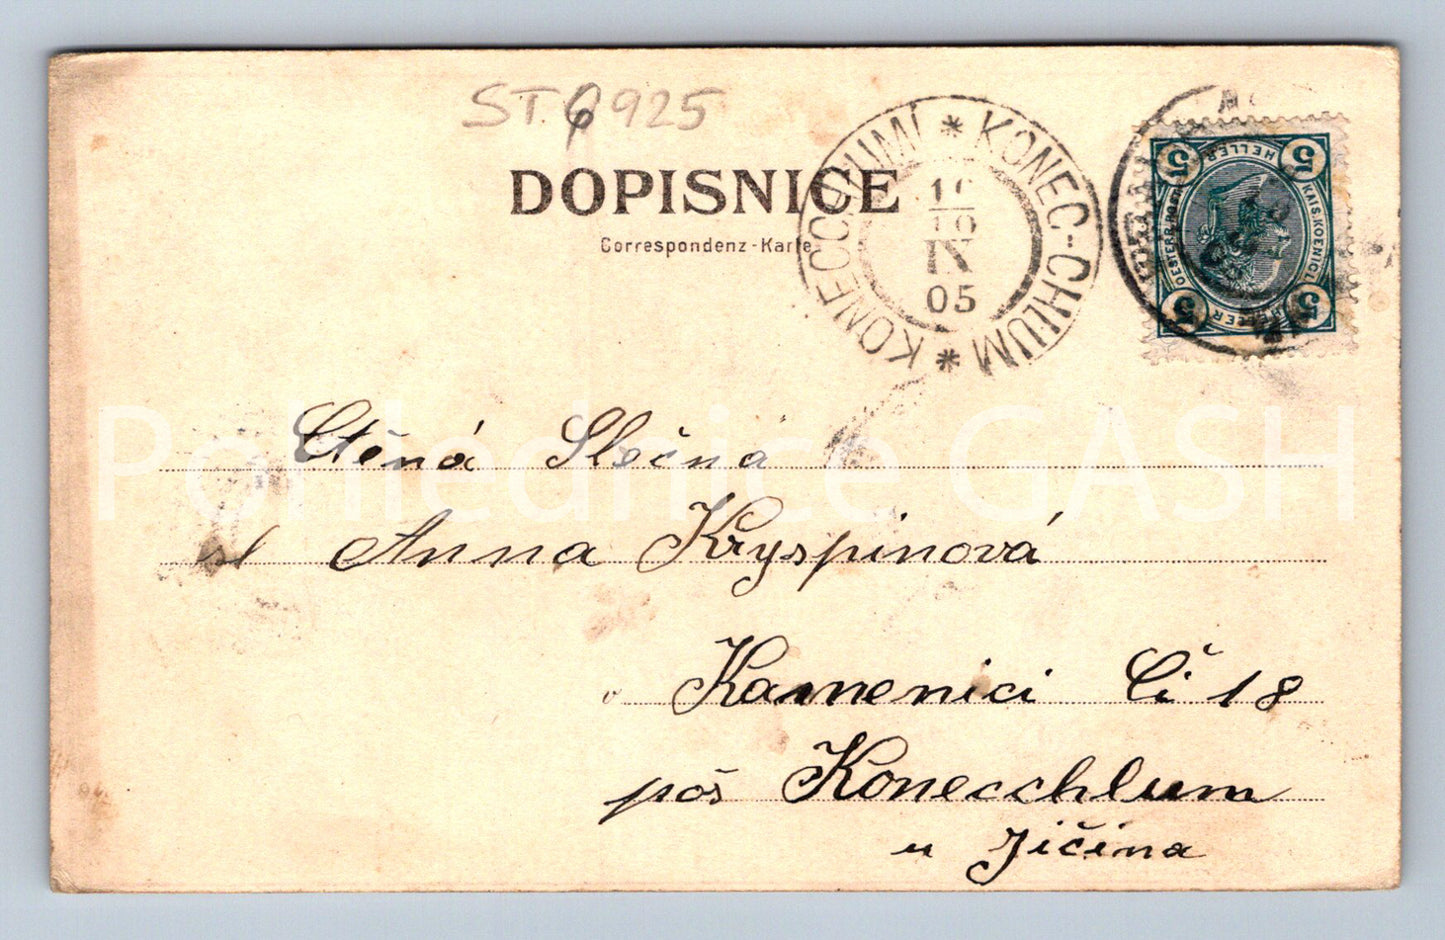 ST. 6925
DOPISNICE
Correspondenz-Karte
KONECCHLUMÍ * KONEC-CHLUM *
10
IX
05
5 HELLER 5
KAIS.KOENIGL.
OESTERR.POST
5 HELLER 5
Pohlednice GASH
Ctěná Slečná
sl Anna Kryspinová
v Kamenici Čí 18
pós Konecchlum
u Jičina